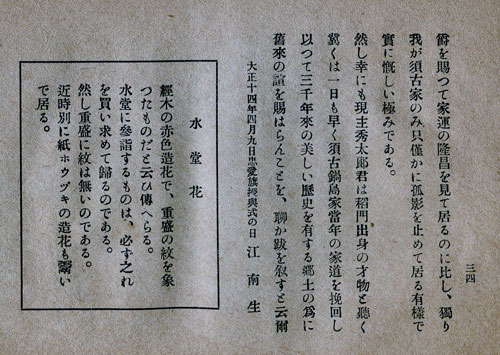 爵を賜つて家運の隆昌を見て居るのに比し、獨り
我が須古家のみ只僅かに孤影を止めて居る有様で
實に慨しい極みである。
然し幸にも現主秀太郎君は稻門出身の才物と聽く
冀くは一日も早く須古鍋島家當年の家道を挽回し
以つて三千年來の美しい歴史を有する鄕土の爲に
舊來の誼を賜はらんことを、聊か跋を敍すと云爾
大正十四年四月九日忠愛旗授與式の日 江南生
水堂花
經木の赤色造花で、重盛の紋を象
つたものだと云ひ傳へらる。
水堂に參詣するものは、必ず之れ
を買い求めて歸るのである。
然し重盛に紋は無いのである。
近時別に紙ホウヅキの造花も鬻い
で居る。
三四